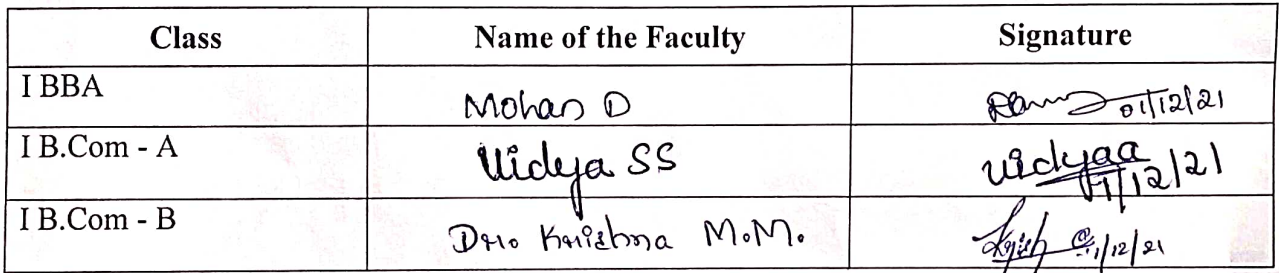 Class Name of the Faculty Signature
I BBA Mohan D 01/12/21
I B.Com - A Vidya SS Vidyaa 1/12/21
I B.Com - B Dr. Krishna M.M. 1/12/21